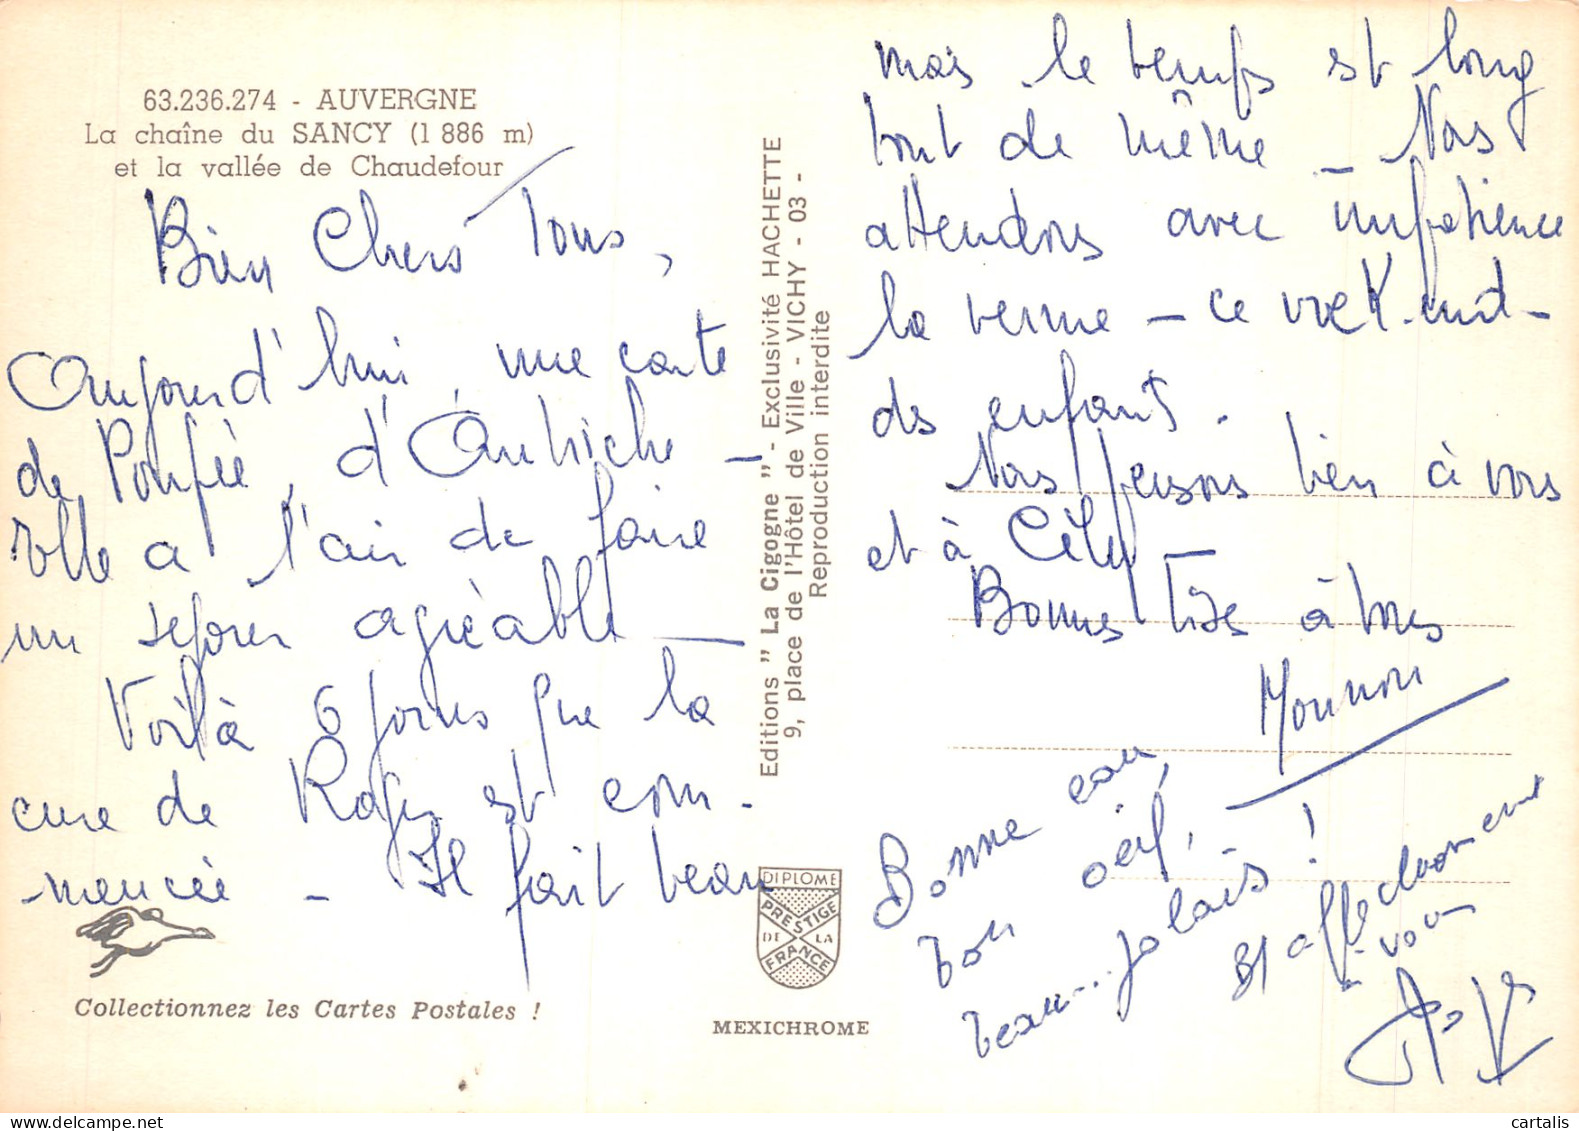 63.236.274 - AUVERGNE
La chaîne du SANCY (1 886 m)
et la vallée de Chaudefour
Bien Chers Tous,
Aujourd'hui, une carte
de d'Autriche –
elle a l'air de faire
un séjour agréable –
Voilà 6 jours que la
cure de Roger est com-
mencée – Il fait beau
mais le temps est long
tout de même – Nous
attendons avec impatience
la venue – ce week-end –
des enfants.
Nous pensons bien à vous
et à
Bonnes bises à tous
Mounou
Bonne eau,
bon œil,
beau... jolais !
Et affectionement
à vous
Editions " La Cigogne " - Exclusivité HACHETTE
9, place de l'Hôtel de Ville - VICHY - 03 -
Reproduction interdite
DIPLOME
PRESTIGE
DE LA
FRANCE
MEXICHROME
Collectionnez les Cartes Postales !
cartalis